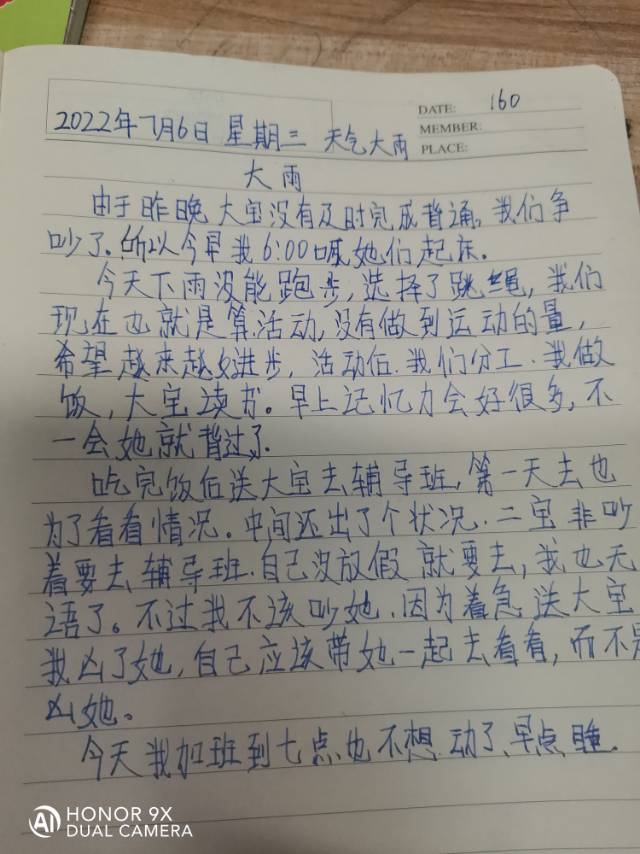 DATE: 160
MEMBER:
PLACE:
2022年7月6日 星期三 天气大雨
大雨
由于昨晚大宝没有及时完成背诵,我们争
吵了.所以今早我6:00喊她们起床.
今天下雨没能跑步,选择了跳绳,我们
现在也就是算活动,没有做到运动的量,
希望越来越好进步,活动后.我们分工.我做
饭,大宝读书。早上记忆力会好很多,不
一会她就背过了.
吃完饭后送大宝去辅导班,第一天去也
为了看看情况。中间还出了个状况.二宝非吵
着要去辅导班.自己没放假就要去,我也无
语了。不过我不该吵她.因为着急送大宝
我凶了她,自己应该带她一起去看看,而不是
凶她。
今天我加班到七点也不想动了、早点睡.
HONOR 9X
DUAL CAMERA